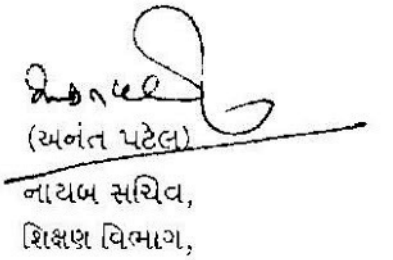 (અનંત પટેલ)
નાયબ સચિવ,
શિક્ષણ વિભાગ,